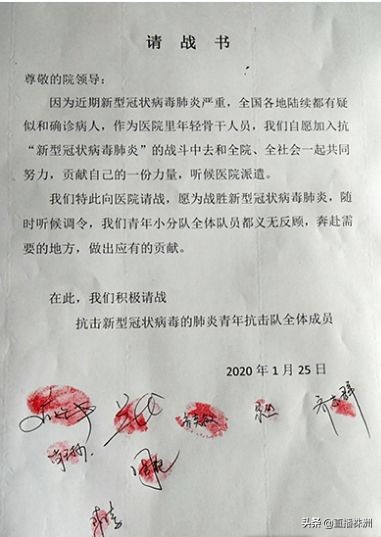 请战书
尊敬的院领导：
因为近期新型冠状病毒肺炎严重，全国各地陆续都有疑
似和确诊病人，作为医院里年轻骨干人员，我们自愿加入抗
“新型冠状病毒肺炎”的战斗中去和全院、全社会一起共同
努力，贡献自己的一份力量，听候医院派遣。
我们特此向医院请战，愿为战胜新型冠状病毒肺炎，随
时听候调令，我们青年小分队全体队员都义无反顾，奔赴需
要的地方，做出应有的贡献。
在此，我们积极请战
抗击新型冠状病毒的肺炎青年抗击队全体成员
2020年1月25日
头条@直播株洲